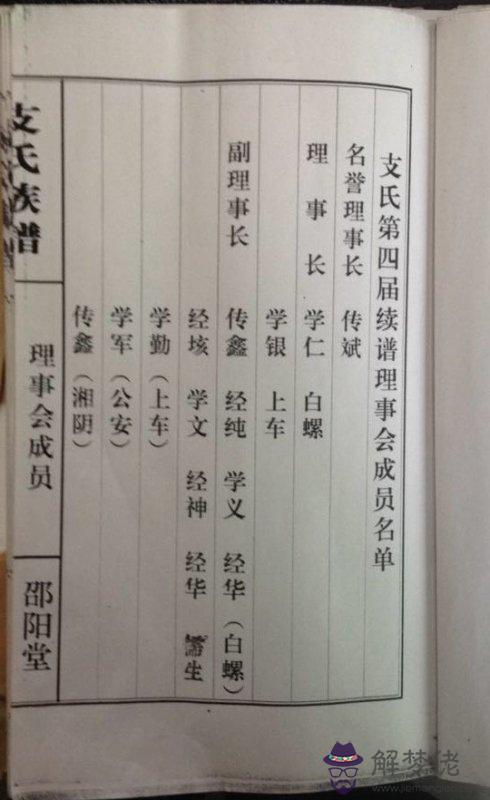 支氏第四届续谱理事会成员名单
名誉理事长 传斌
理事长 学仁 白螺
学银 上车
副理事长 传鑫 经纯 学义 经华（白螺）
经垓 学文 经神 经华 生
学勤（上车）
学军（公安）
传鑫（湘阴）
支氏族谱
理事会成员
邵阳堂
解梦佬
www.jiemenglao.com